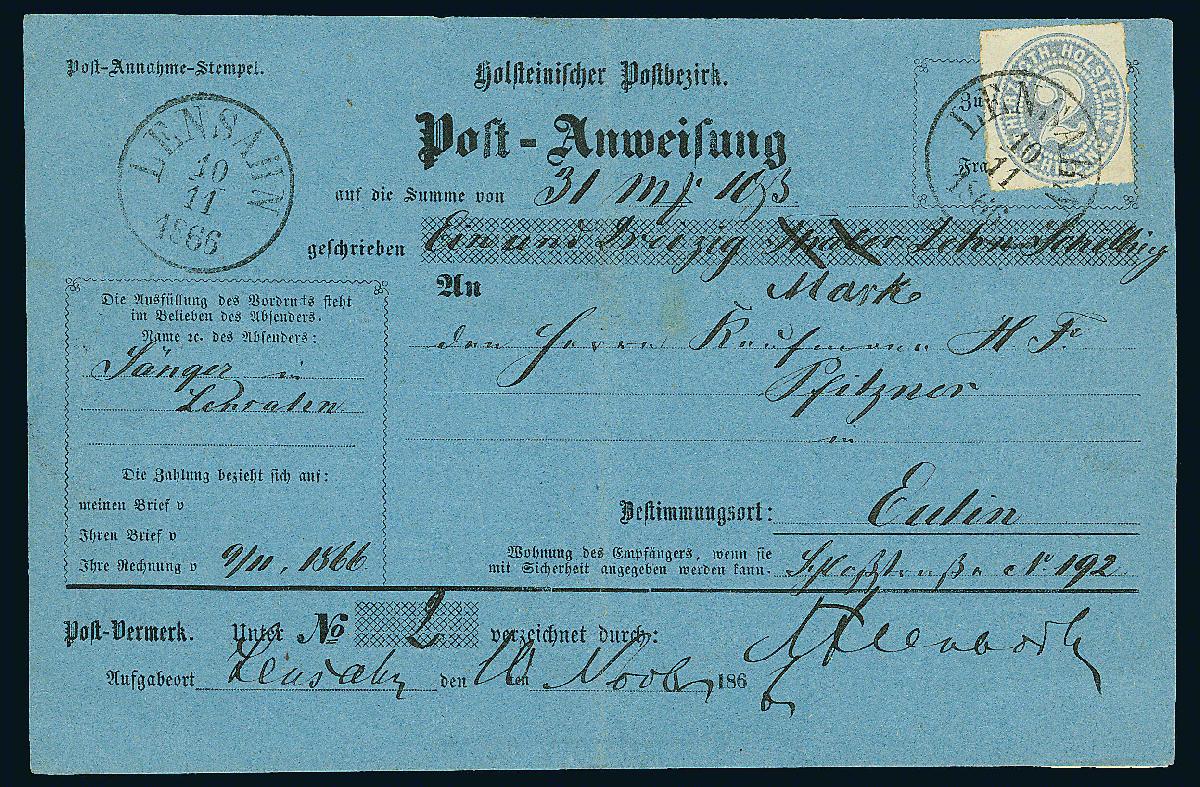 Post-Annahme-Stempel.
LENSAHN
10
11
1866
Holsteinischer Postbezirk.
Post-Anweisung
HERZOGTH. HOLSTEIN
2
LENSAHN
10
11
1866
auf die Summe von 31 Mk 10 ß
geschrieben Ein und Dreizig Thaler Zehn Schilling
Mark
An
den Herrn Kaufmann H F.
Pfitzner
in
Die Ausfüllung des Vordrucks steht
im Belieben des Absenders.
Name ꝛc. des Absenders:
Sänger in
Lensahn
Die Zahlung bezieht sich auf:
meinen Brief v
Ihren Brief v
Ihre Rechnung v 9/11. 1866
Bestimmungsort: Eutin
Wohnung des Empfängers, wenn sie
mit Sicherheit angegeben werden kann. Schloßstraße No 192
Post-Vermerk. Unter No 2 verzeichnet durch:
Aufgabeort Lensahn den 10ten Novbr 186